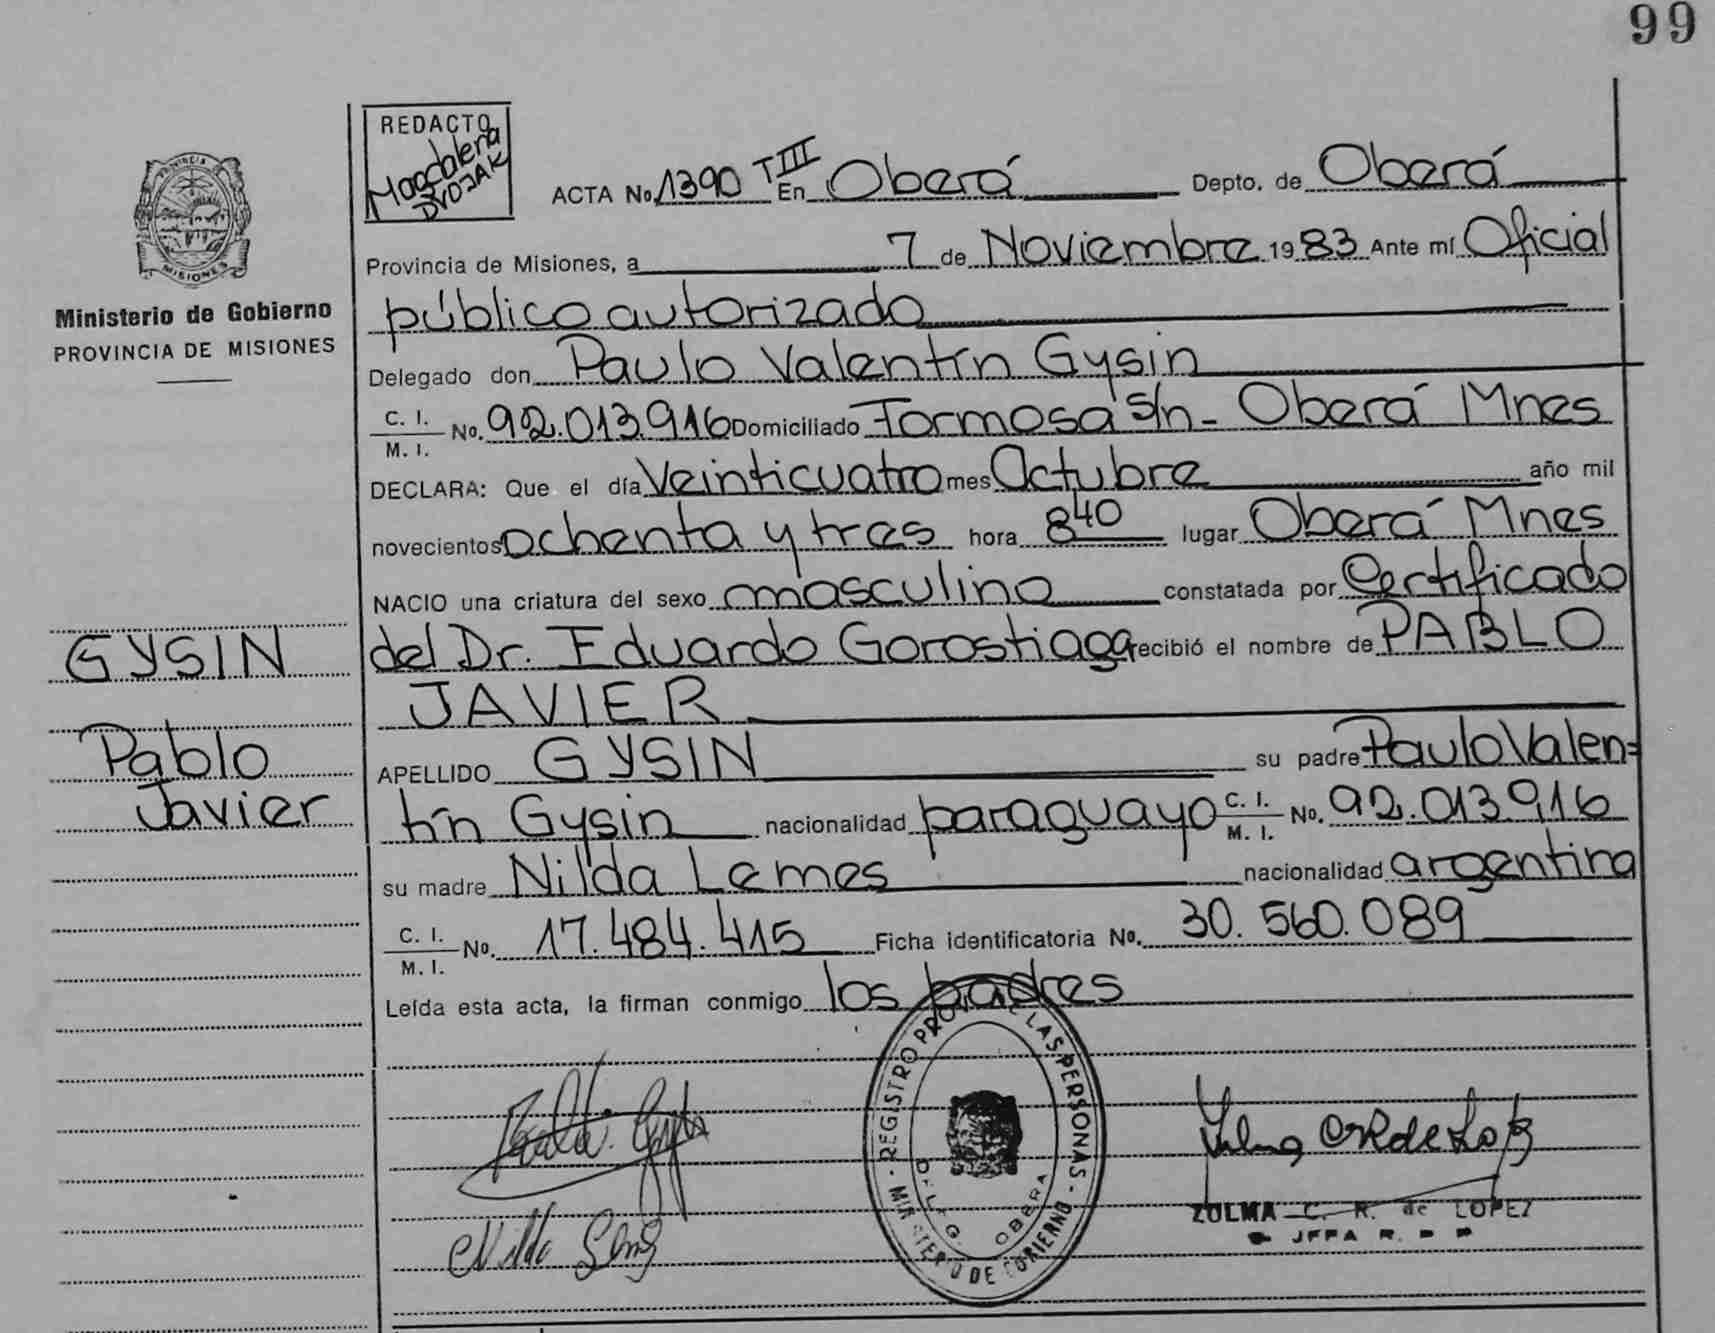 99
REDACTO
Magdalena
DVOJAK
PROVINCIA
MISIONES
Ministerio de Gobierno
PROVINCIA DE MISIONES
ACTA No. 1390 TIII En Oberá Depto. de Oberá
Provincia de Misiones, a 7 de Noviembre 1983 Ante mí Oficial
público autorizado
Delegado don Paulo Valentín Gysin
C. I. M. I. No. 92.013.916 Domiciliado Formosa s/n - Oberá Mnes
DECLARA: Que el día Veinticuatro mes Octubre año mil
novecientos ochenta y tres hora 8 40 lugar Oberá Mnes
NACIO una criatura del sexo masculino constatada por Certificado
del Dr. Eduardo Gorostiaga recibió el nombre de PABLO
JAVIER
APELLIDO GYSIN su padre Paulo Valen=
tín Gysin nacionalidad paraguayo C. I. M. I. No. 92.013.916
su madre Nilda Lemes nacionalidad argentina
C. I. M. I. No. 17.484.415 Ficha identificatoria No. 30.560.089
Leída esta acta, la firman conmigo los padres
GYSIN
Pablo
Javier
REGISTRO PROV LAS PERSONAS - MINISTERIO DE GOBIERNO -
DELEG. OBERA
Nilda
ZULMA C. R. de LOPEZ
JEFA R. P. P.